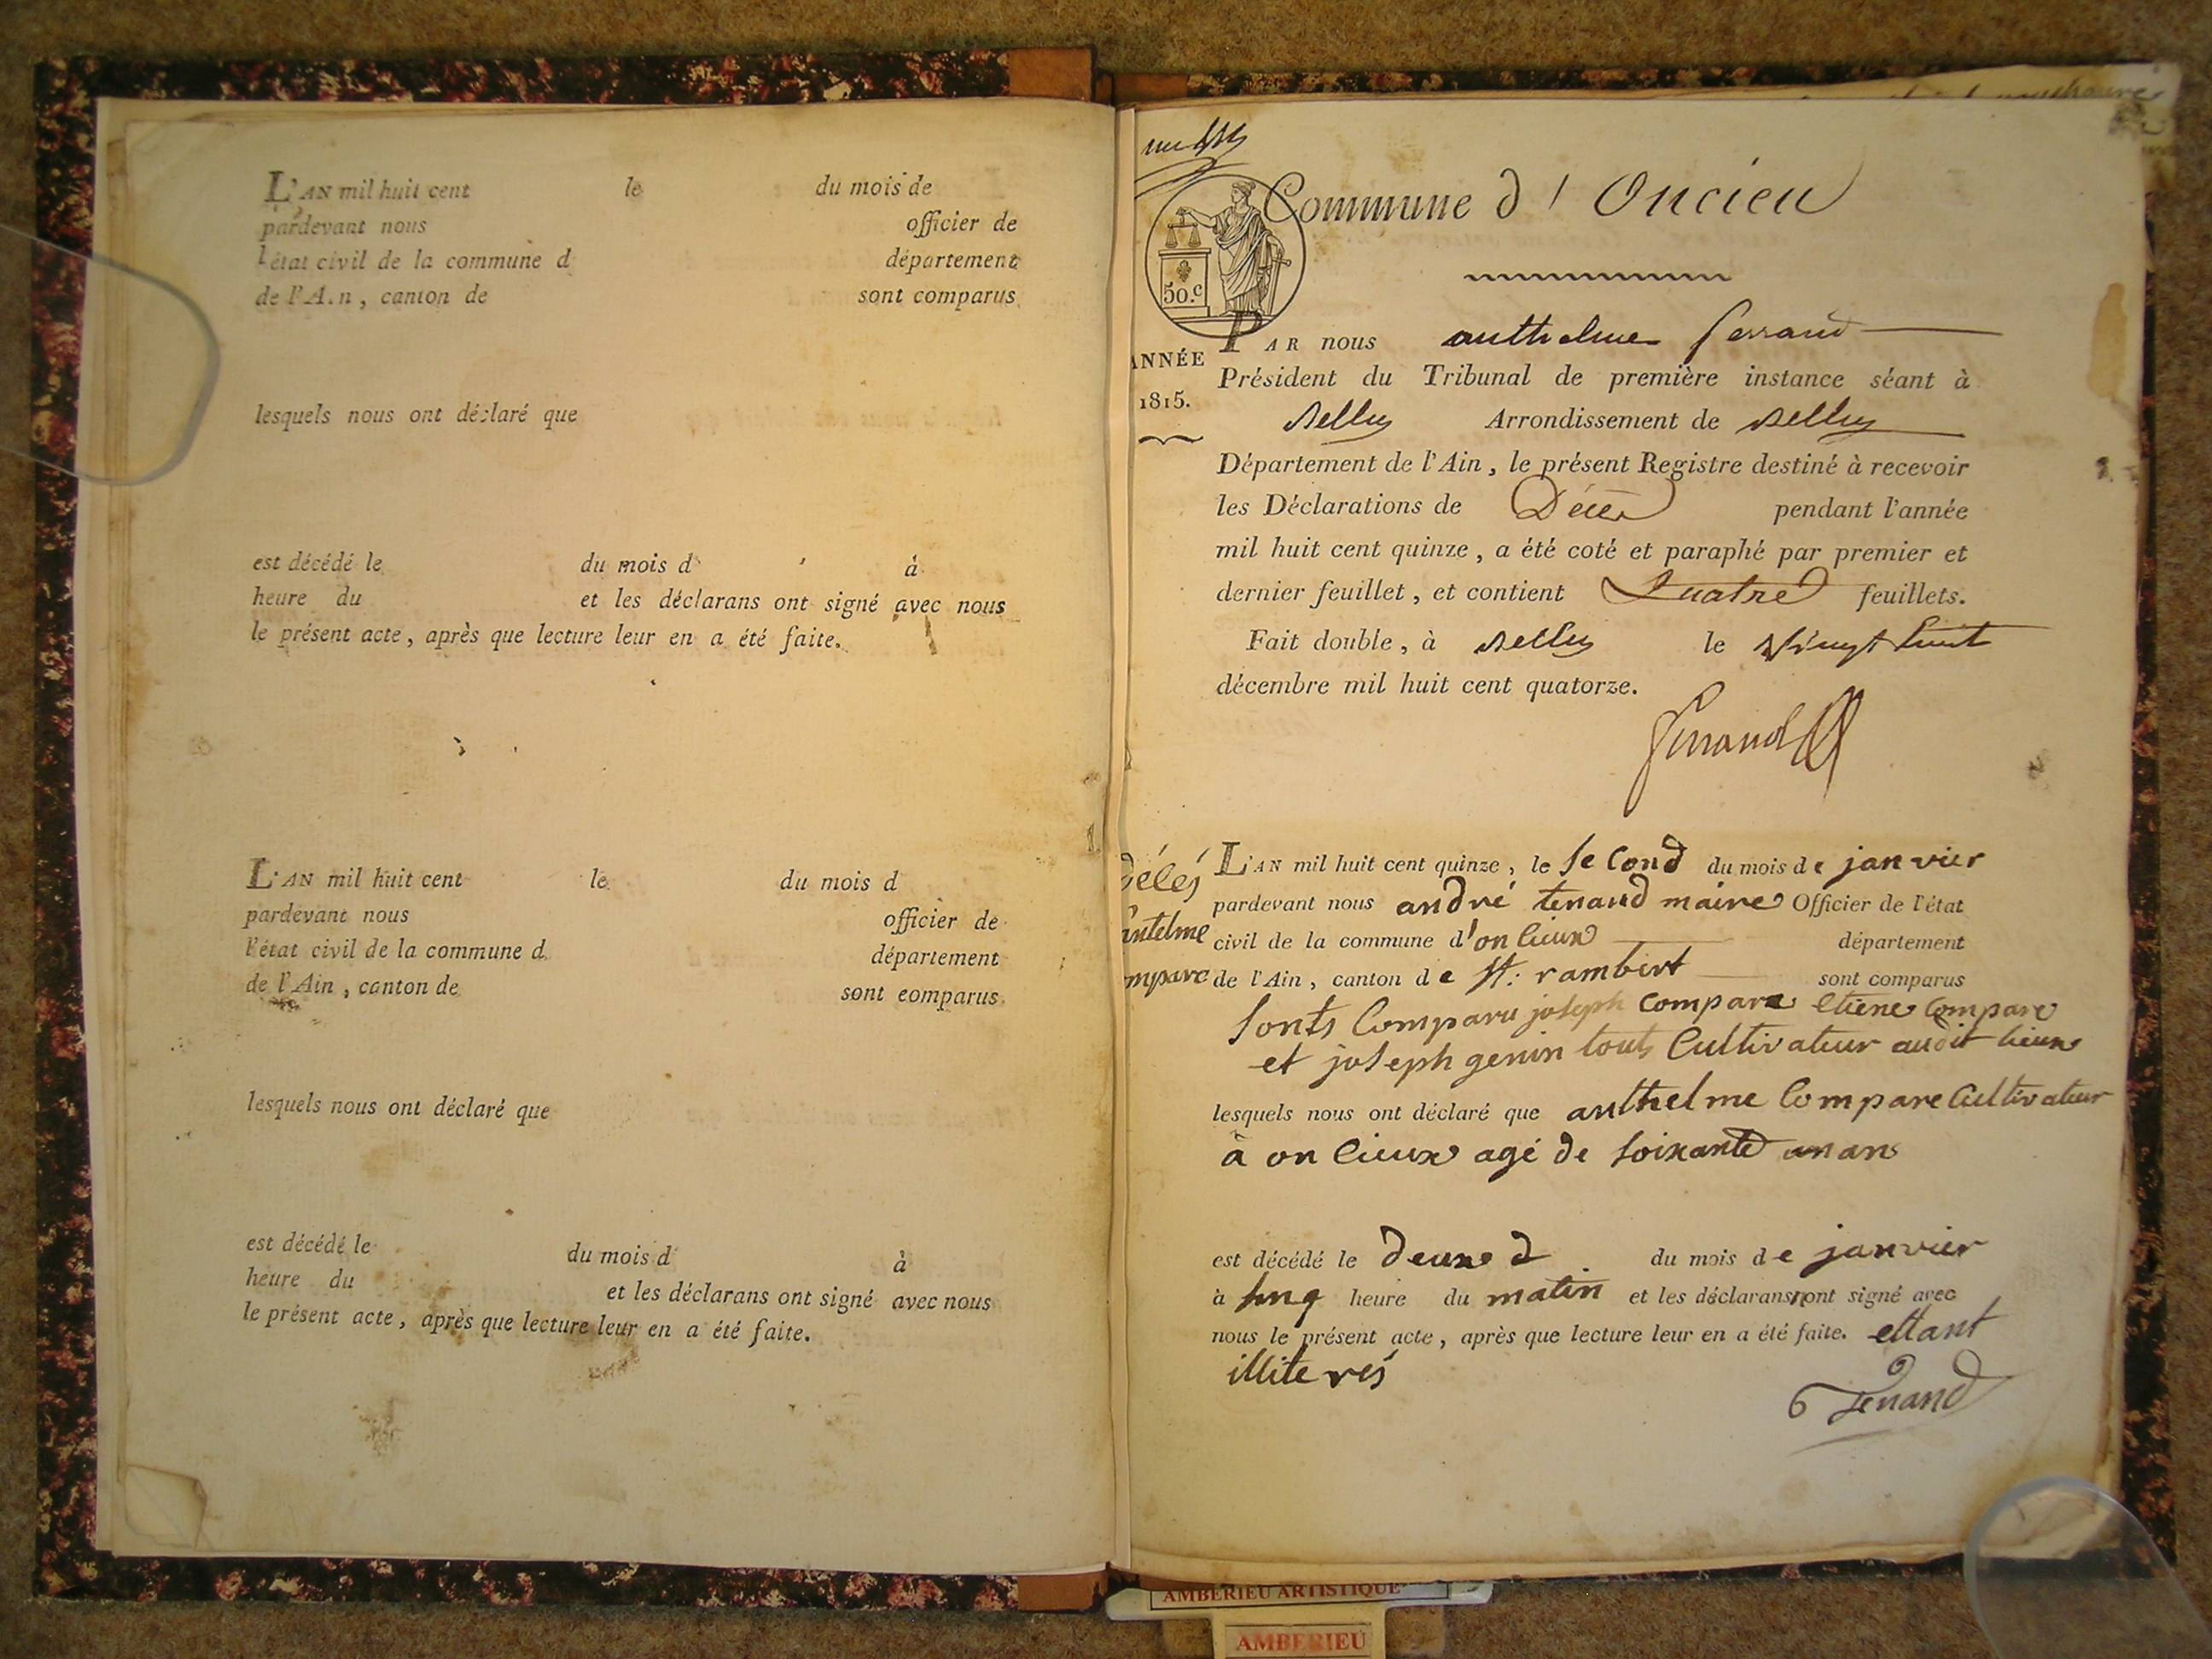 L'AN mil huit cent le du mois de
pardevant nous officier de
l'état civil de la commune d département
de l'A.n, canton de sont comparus
lesquels nous ont déclaré que
est décédé le du mois d à
heure du et les déclarans ont signé avec nous
le présent acte, après que lecture leur en a été faite.
L'AN mil huit cent le du mois d
pardevant nous officier de
l'état civil de la commune d département
de l'Ain, canton de sont comparus
lesquels nous ont déclaré que
est décédé le du mois d à
heure du et les déclarans ont signé avec nous
le présent acte, après que lecture leur en a été faite.
Commune d'Oncieu
50.c
ANNÉE
1815.
PAR nous anthelme ferrand
Président du Tribunal de première instance séant à
Belley Arrondissement de Belley
Département de l'Ain, le présent Registre destiné à recevoir
les Déclarations de Décès pendant l'année
mil huit cent quinze, a été coté et paraphé par premier et
dernier feuillet, et contient quatre feuillets.
Fait double, à Belley le vingt huit
décembre mil huit cent quatorze.
ferrand
délés
antelme
mpare
L'AN mil huit cent quinze, le selond du mois de janvier
pardevant nous andré tenand maire Officier de l'état
civil de la commune d'onlieux département
de l'Ain, canton de st: rambert sont comparus
sonts Comparu joseph Compare etiene Compare
et joseph genin touts Cultivateur audit lieux
lesquels nous ont déclaré que anthelme Compare Cultivateur
à onlieux agé de soixante un ans
est décédé le deux d du mois de janvier
à sinq heure du matin et les déclarans nont signé avec
nous le présent acte, après que lecture leur en a été faite. ettant
illiterés
Tenand
AMBERIEU ARTISTIQUE
AMBERIEU